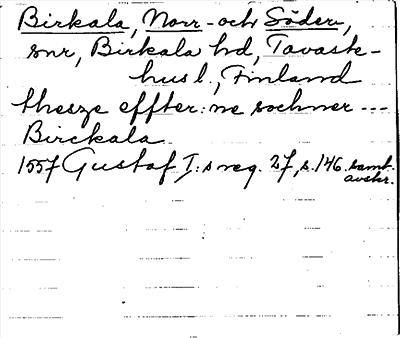 Birkala, Norr- och Söder,
snr, Birkala hd, Tavaste-
hus l., Finland
thesze effter: ne sochner ---
Birckala
1557 Gustaf I: s reg. 27, s. 146. samt.
avskr.